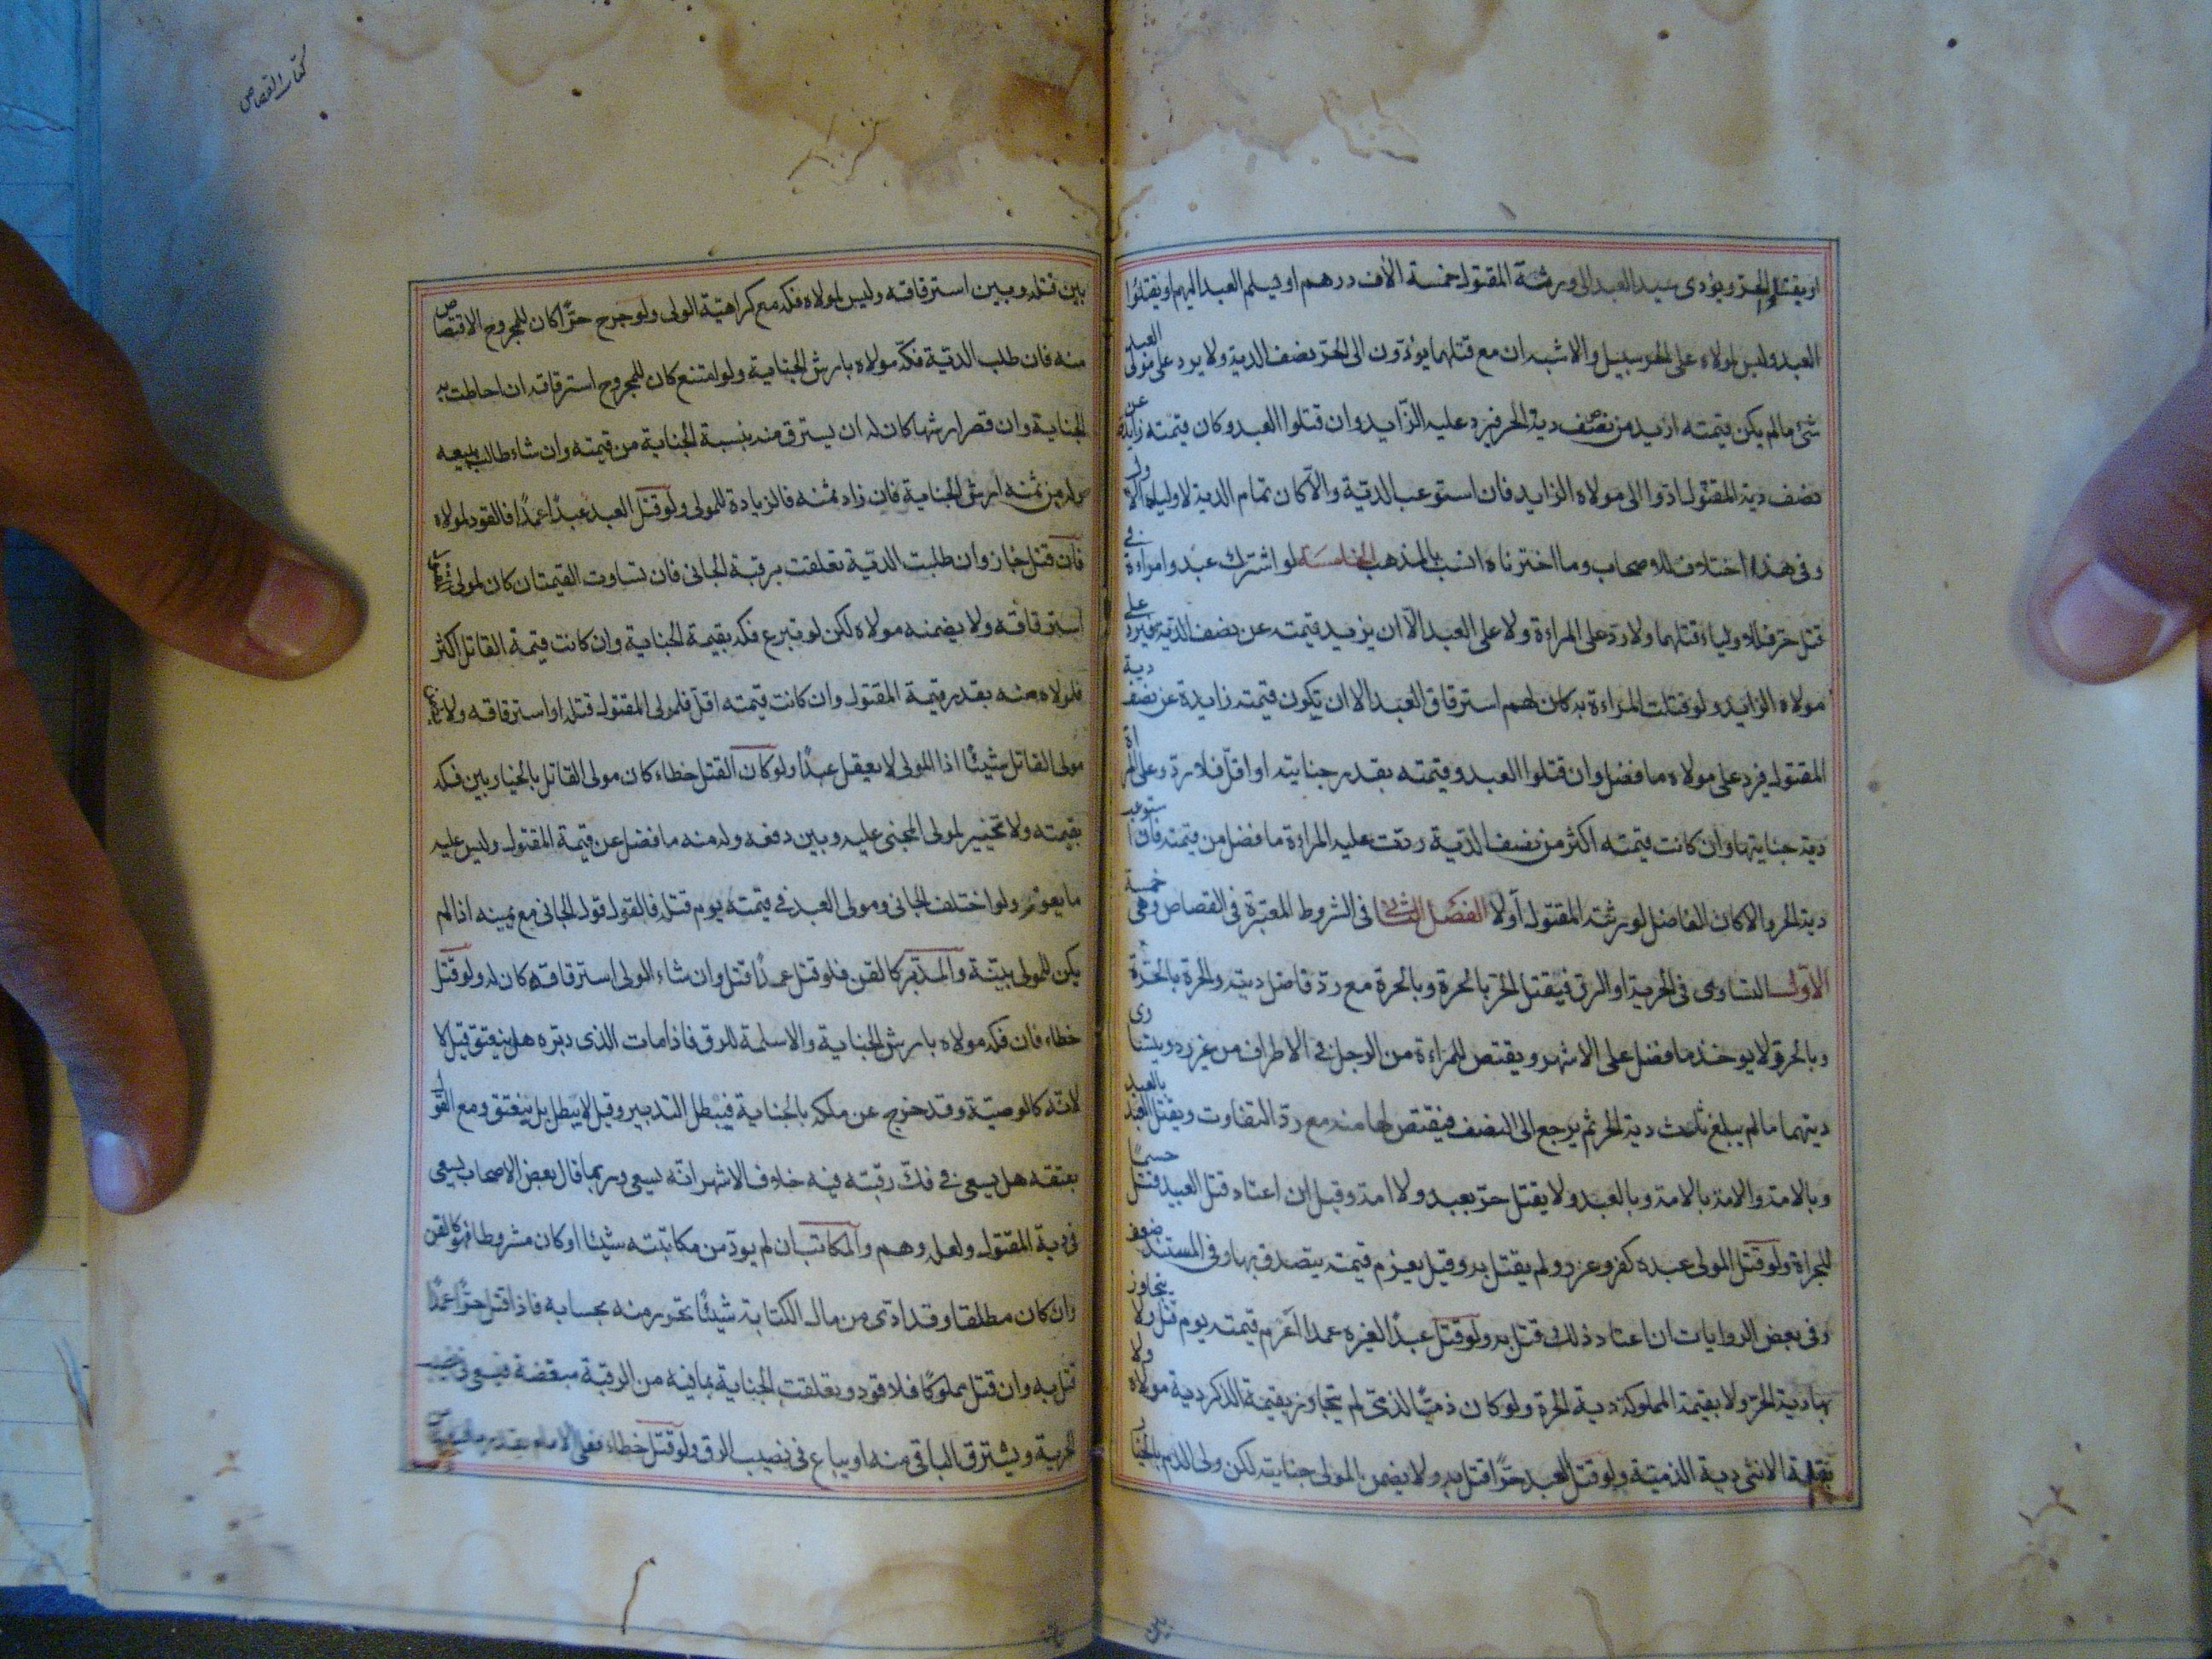 او يقتل الحر ويؤدى سيد العبد الى ورثة المقتول خمسة الاف درهم او يسلم العبد اليهم او يقتلوا
العبد وليس لمولاه على الحر سبيل والاشبه ان مع قتلهما يؤدون الى الحر نصف الدية ولا يرد على مولى العبد
شئ ما لم يكن قيمته ازيد من نصف دية الحر فيرد عليه الزايد وان قتلوا العبد وكان قيمته زايدة عن
نصف دية المقتول ادوا الى مولاه الزايد فان استوعب الدية والا كان تمام الدية لاولياء الاول
وفى هذا اختلاف للاصحاب وما اخترناه انسب بالمذهب الخامسة لو اشترك عبد وامراءة في
قتل حر فللاولياء قتلهما ولا رد على المراءة ولا على العبد الا ان يزيد قيمته عن نصف الدية فيرد على
مولاه الزايد ولو قتلت المراءة به كان لهم استرقاق العبد الا ان يكون قيمته زايدة عن نصف دية
المقتول فيرد على مولاه ما فضل وان قتلوا العبد وقيمته بقدر جنايته او اقل فلا رد وعلى المراة
دية جنايتها وان كانت قيمته اكثر من نصف الدية ردت عليه المراءة ما فضل من قيمته فان استوعب
دية الحر والا كان الفاضل لورثة المقتول اولا الفصل الثانى فى الشروط المعتبرة فى القصاص وهى خمسة
الاول التساوى فى الحرية او الرق فيقتل الحر بالحر وبالحرة مع رد فاضل ديته والحرة بالحرة
وبالحر ولا يوخذ ما فضل على الاشهر ويقتص للمراءة من الرجل في الاطراف من غير رد ويتساوى
ديتهما ما لم يبلغ ثلث دية الحر ثم يرجع الى النصف فيقتص لها منه مع رد التفاوت ويقتل العبد بالعبد
وبالامة والامة بالامة وبالعبد ولا يقتل حر بعبد ولا امة وقيل ان اعتاد قتل العبيد قتل حسما
للجراة ولو قتل المولى عبده كفر وعزر ولم يقتل به وقيل يغرم قيمته يتصدق بها وفى المستند ضعف
وفى بعض الروايات ان اعتاد ذلك قتل به ولو قتل عبدا لغيره عمدا اغرم قيمته يوم قتل ولا يتجاوز
بها دية الحر ولا بقيمة المملوكة دية الحرة ولو كان ذميا لذمى لم يتجاوز بقيمة الذكر دية مولاه ولا
بقيمة الانثى دية الذمية ولو قتل العبد حرا قتل به ولا يضمن المولى جنايته لكن ولى الدم بالخيار
كتاب القصاص
بين قتله وبين استرقاقه وليس لمولاه فكه مع كراهية الولى ولو جرح حرا كان للمجروح الاقتصاص
منه فان طلب الدية فكه مولاه بارش الجناية ولو امتنع كان للمجروح استرقاقه ان احاطت به
الجناية وان قصر ارشها كان له ان يسترق منه بنسبة الجناية من قيمته وان شاء طالب ببيعه
وله من ثمنه ارش الجناية فان زاد ثمنه فالزيادة للمولى ولو قتل العبد عبدا عمدا فالقود لمولاه
فان قتل جاز وان طلبت الدية تعلقت برقبة الجانى فان تساوت القيمتان كان لمولى
استرقاقه ولا يضمنه مولاه لكن لو تبرع فكه بقيمة الجناية وان كانت قيمة القاتل اكثر
فلمولاه منه بقدر قيمة المقتول وان كانت قيمته اقل فلمولى المقتول قتله او استرقاقه ولا
مولى القاتل شيئا اذا المولى لا يعقل عبدا ولو كان القتل خطاء كان مولى القاتل بالخيار بين فكه
بقيمته ولا تخيير لمولى المجنى عليه وبين دفعه وله منه ما فضل عن قيمة المقتول وليس عليه
ما يعوز ولو اختلف الجانى ومولى العبد في قيمته يوم قتل فالقول قول الجانى مع يمينه اذا لم
يكن للمولى بينة والمدبر كالقن فلو قتل عمدا قتل وان شاء الولى استرقاقه كان له ولو قتل
خطاء فان فكه مولاه بارش الجناية والا سلمه للرق فاذا مات الذى دبره هل ينعتق قيل لا
لانه كالوصية وقد خرج عن ملكه بالجناية فيبطل التدبير وقيل لا يبطل بل ينعتق ومع القول
بعتقه هل يسعى في فك رقبته فيه خلاف الاشهر انه يسعى وربما قال بعض الاصحاب يسعى
فى دية المقتول ولعله وهم والمكاتب ان لم يود من مكاتبته شيئا او كان مشروطا فهو كالقن
وان كان مطلقا وقد ادى من مال الكتابة شيئا تحرر منه بحسابه فاذا قتل حرا عمدا
قتل به وان قتل مملوكا فلا قود وتعلقت الجناية بما فيه من الرقبة مبعضة فيسعى فى نصيب
الحرية ويسترق الباقى منه او يباع فى نصيب الرق ولو قتل خطاء فعلى الامام بقدر ما فيه